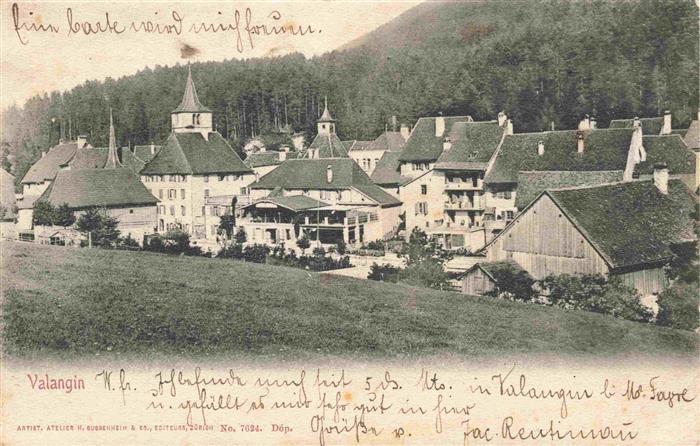 Eine Carte wird mich freuen.
Valangin
W. fr. Ich befinde mich seit 5. ds. Mts. in Valangin b. Mr. Favre
u. gefällt es mir sehr gut in hier
Grüße v. Jac. Rentimau
ARTIST. ATELIER H. GUGGENHEIM & CO., EDITEURS, ZÜRICH No. 7624. Dép.